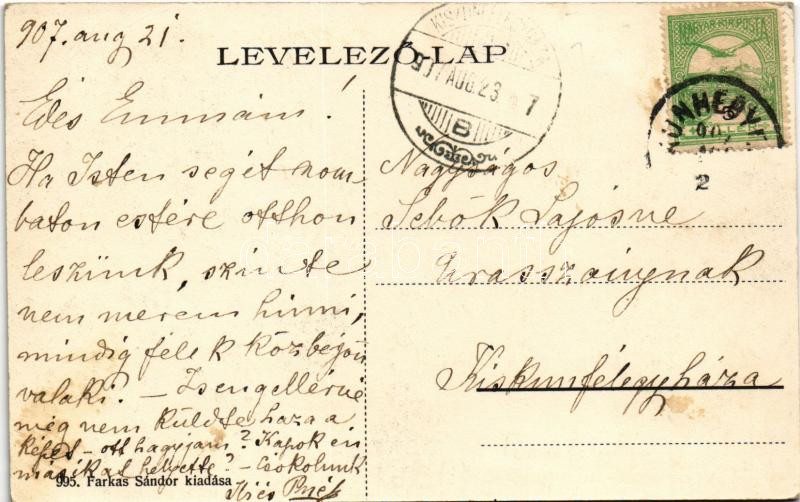 907. aug 21.
LEVELEZŐ-LAP
MAGYAR KIR. POSTA
917 AUG. 23
7
B
KUNHEGYE
907
2
Édes Emmám!
Ha Isten segét szom-
baton estére otthon
leszünk, szinte
nem merem hinni,
mindig félek közbejön
valaki? – Zsengellérné
még nem küldte haza a
képet – ott hagyjam? Kapok én
másikat helyette? – Csókolunk
995. Farkas Sándor kiadása
Nagyságos
Sebők Lajosné
Urasszonynak
Kiskunfélegyháza